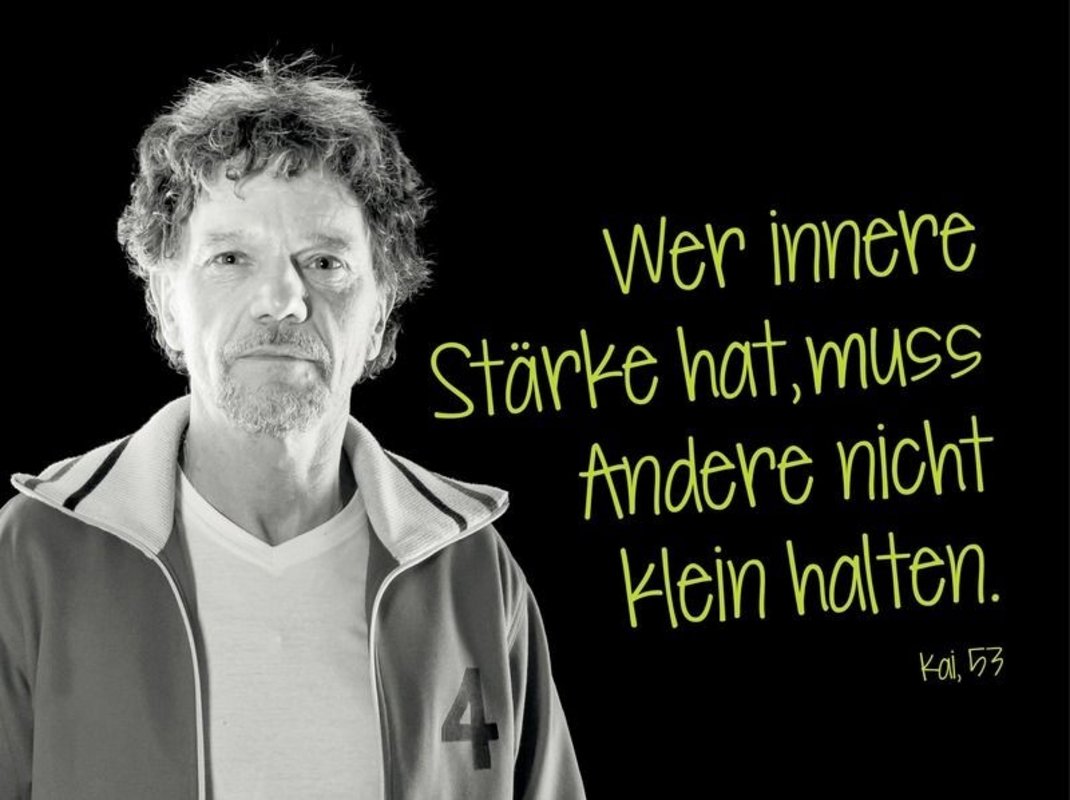 Wer innere
Stärke hat, muss
Andere nicht
klein halten.
Kai, 53
4